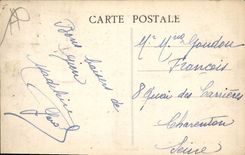 CARTE POSTALE
Bons baisers de
Gien
Madeleine
Mr Mme Goudon
François
8 Quai des Carrières
Charenton
Seine